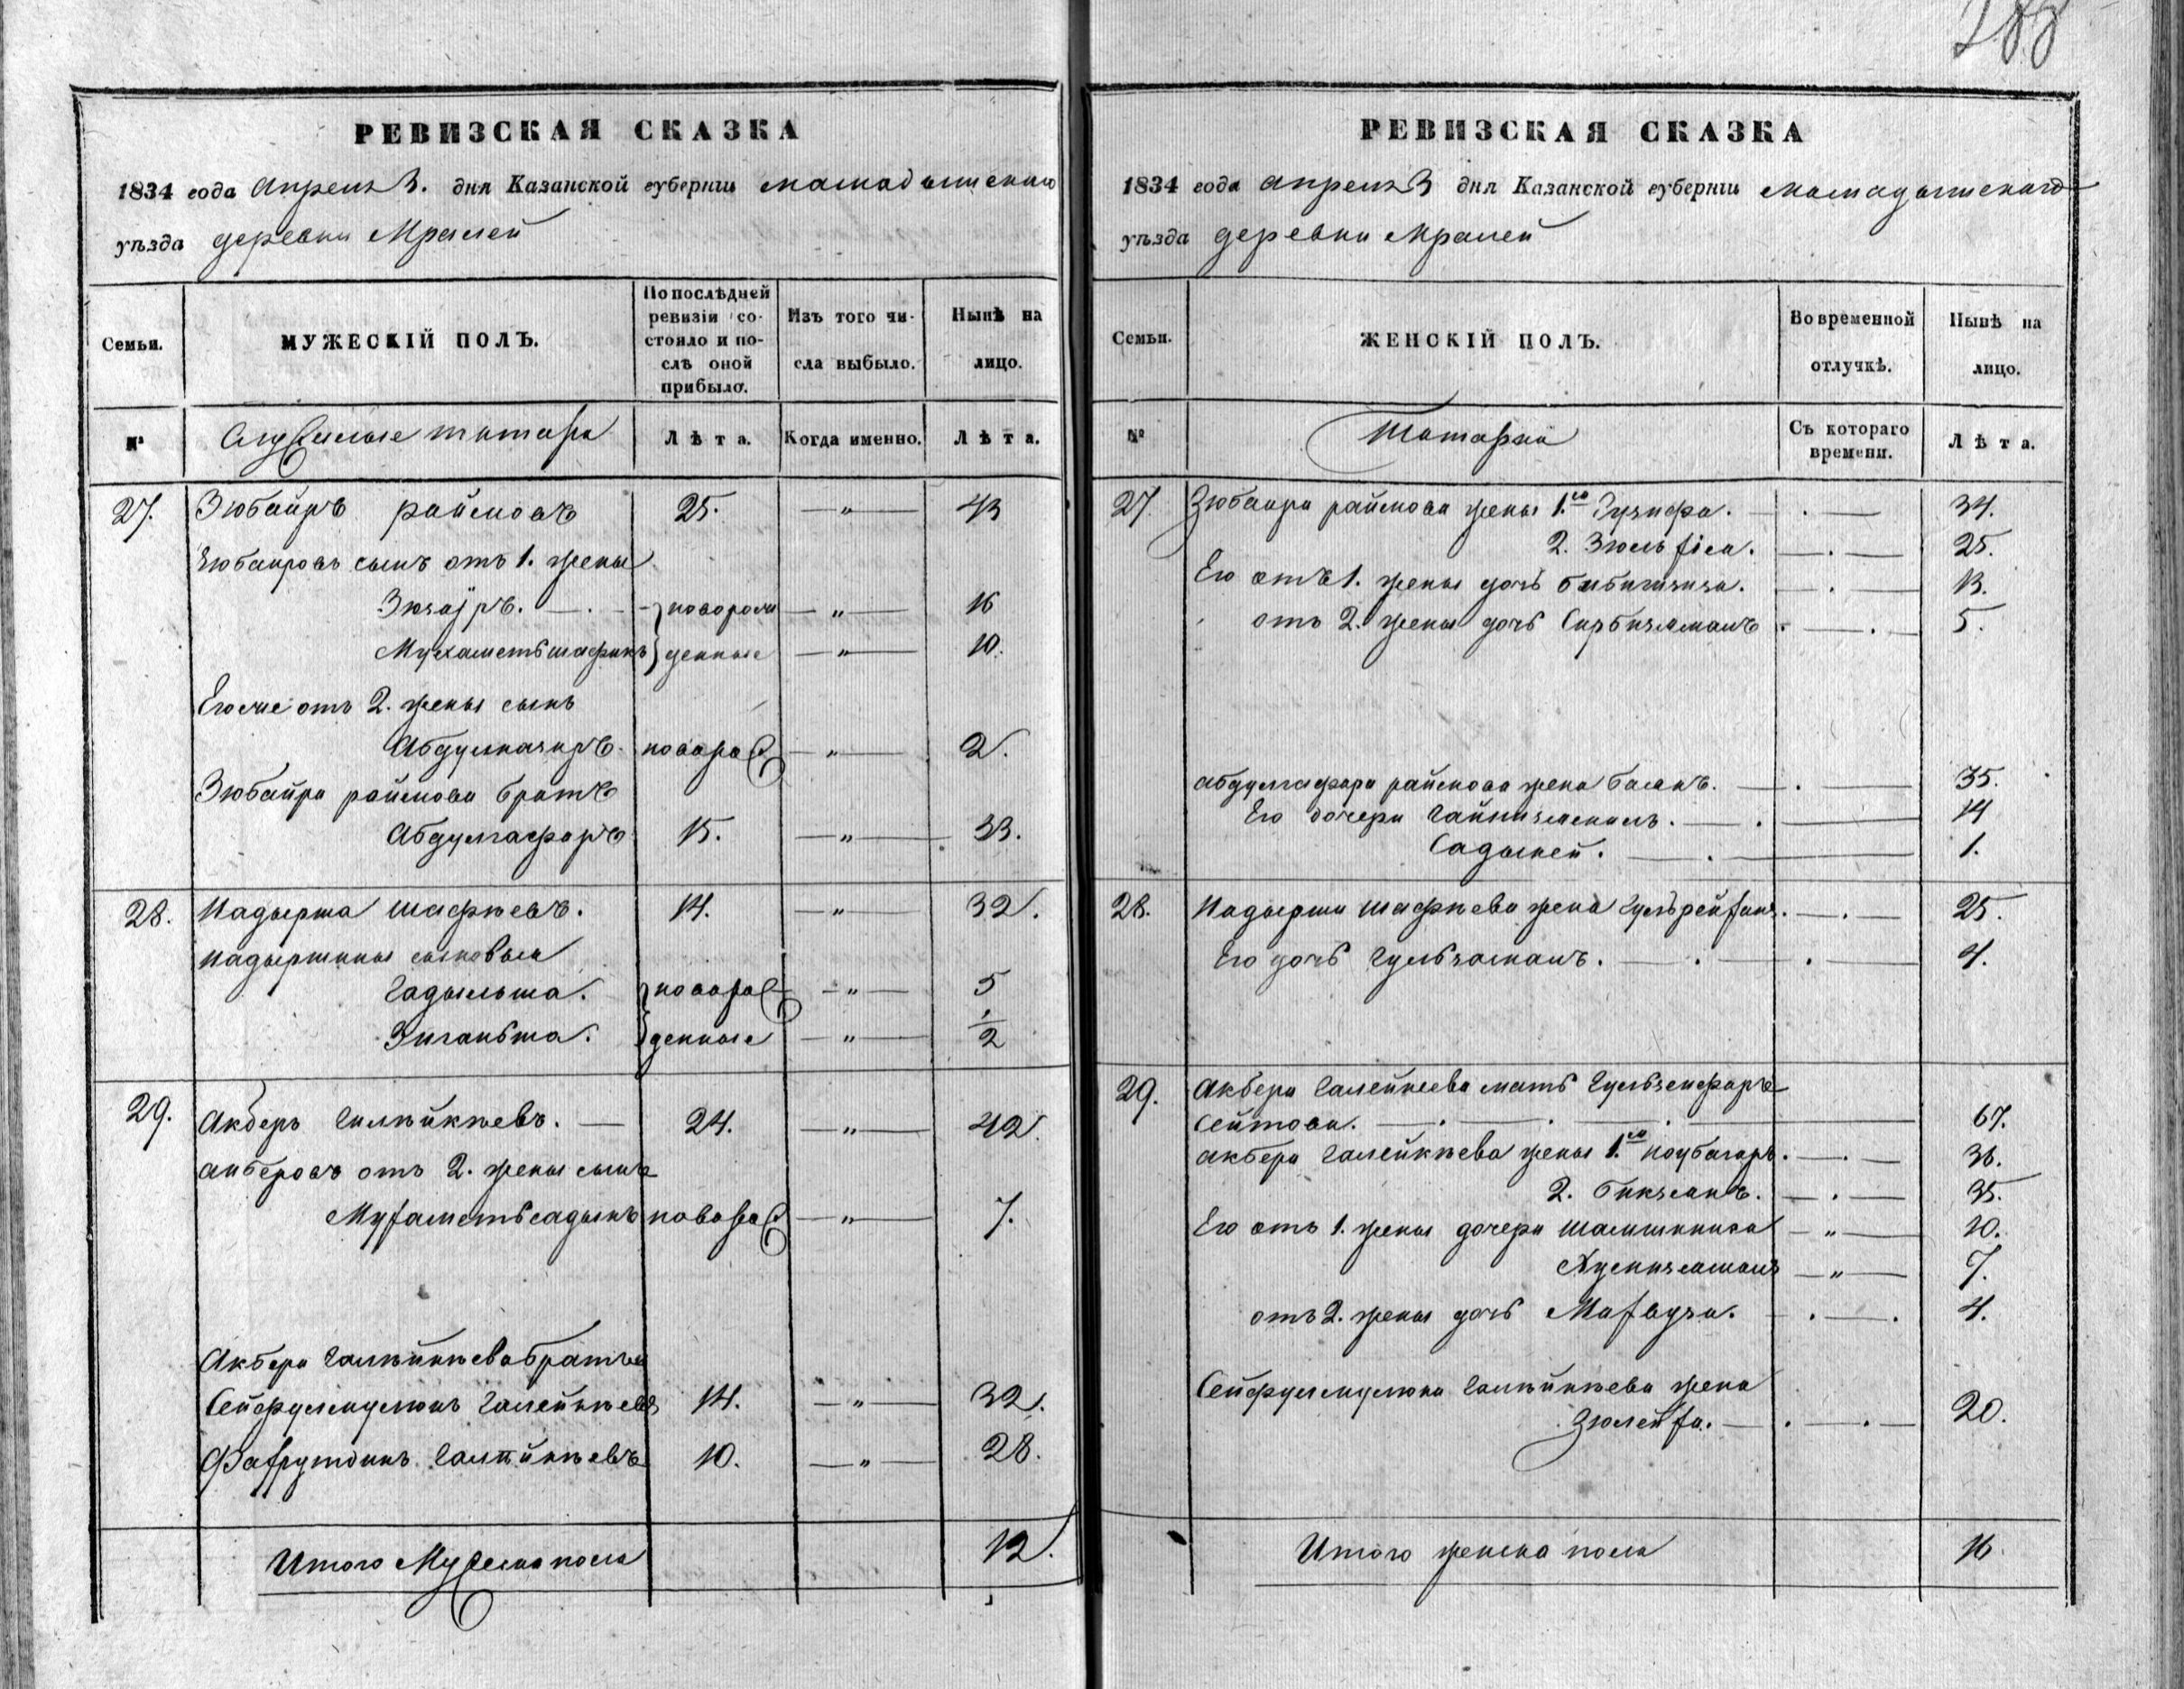 288
РЕВИЗСКАЯ СКАЗКА
1834 года апреля 3. дня Казанской губерніи мамадышскаго
уѣзда деревни Мрамей
Семьи.
МУЖЕСКІЙ ПОЛЪ.
По послѣдней ревизіи состояло и послѣ оной прибыло.
Изъ того числа выбыло.
Нынѣ на лицо.
№
Служилые татара
Лѣта.
Когда именно.
Лѣта.
27. Зюбаиръ раимовъ 25. — „ — 43
Зюбаировъ сынъ отъ 1. жены
Зюгаиръ. новоро — „ — 16
Мухаметьшафикъ жденные — „ — 10.
Егоже отъ 2. жены сынъ
Абдулнагиръ. новорож — „ — 2.
Зюбаира раимова братъ
Абдулгафаръ 15. — „ — 33.
28. Надырша шафѣевъ. 14. — „ — 32.
Надыршины сыновья
Гадыльша. новорож — „ — 5
Зиганьша. денные — „ — 1/2
29. Акберъ Галѣйкѣевъ. — 24. — „ — 42.
акберовъ отъ 2. жены сынъ
Мухаметьсадыкъ новорож — „ — 7.
Акбера Галѣйкѣева братья
Сейфулмулюкъ Галейкѣевъ 14. — „ — 32.
Фахрутдинъ Галѣйкѣевъ 10. — „ — 28.
Итого Мужеска пола 12.
РЕВИЗСКАЯ СКАЗКА
1834 года апреля 3 дня Казанской губерніи мамадышскаго
уѣзда деревни Мрамей
Семьи.
ЖЕНСКІЙ ПОЛЪ.
Во временной отлучкѣ.
Нынѣ на лицо.
№
Татарки
Съ котораго времени.
Лѣта.
27. Зюбаира раимова жены 1.ая Зулифа. — . — 34.
2. Зюльхіа. — . — 25.
Его отъ 1. жены дочь бибигазиза. — . — 13.
отъ 2. жены дочь Сарбизямалъ . — . — 5.
абдулгафара раимова жена баянъ. — . — 35.
Его дочери Гайнизямалъ. — . — 14
Садыкей. — . — 1.
28. Надырши шафѣева жена Гульрейханъ. — . — 25.
Его дочь Гульзаманъ. — . — . — 4.
29. Акбера Галейкеева мать Гульзифаръ
Сеитова. — . — . — . — 67.
акбера Галейкѣева жены 1.ая Ноубагаръ. — . — 36.
2. бикзянъ. — . — 35.
Его отъ 1. жены дочери Шамшиниса — „ — 10.
Хуснизямалъ — „ — 7.
отъ 2. жены дочь Махбуза. — . — . 4.
Сейфулмулюка Галѣйкѣева жена
Зюлейха. — . — . — 20.
Итого женска пола 16